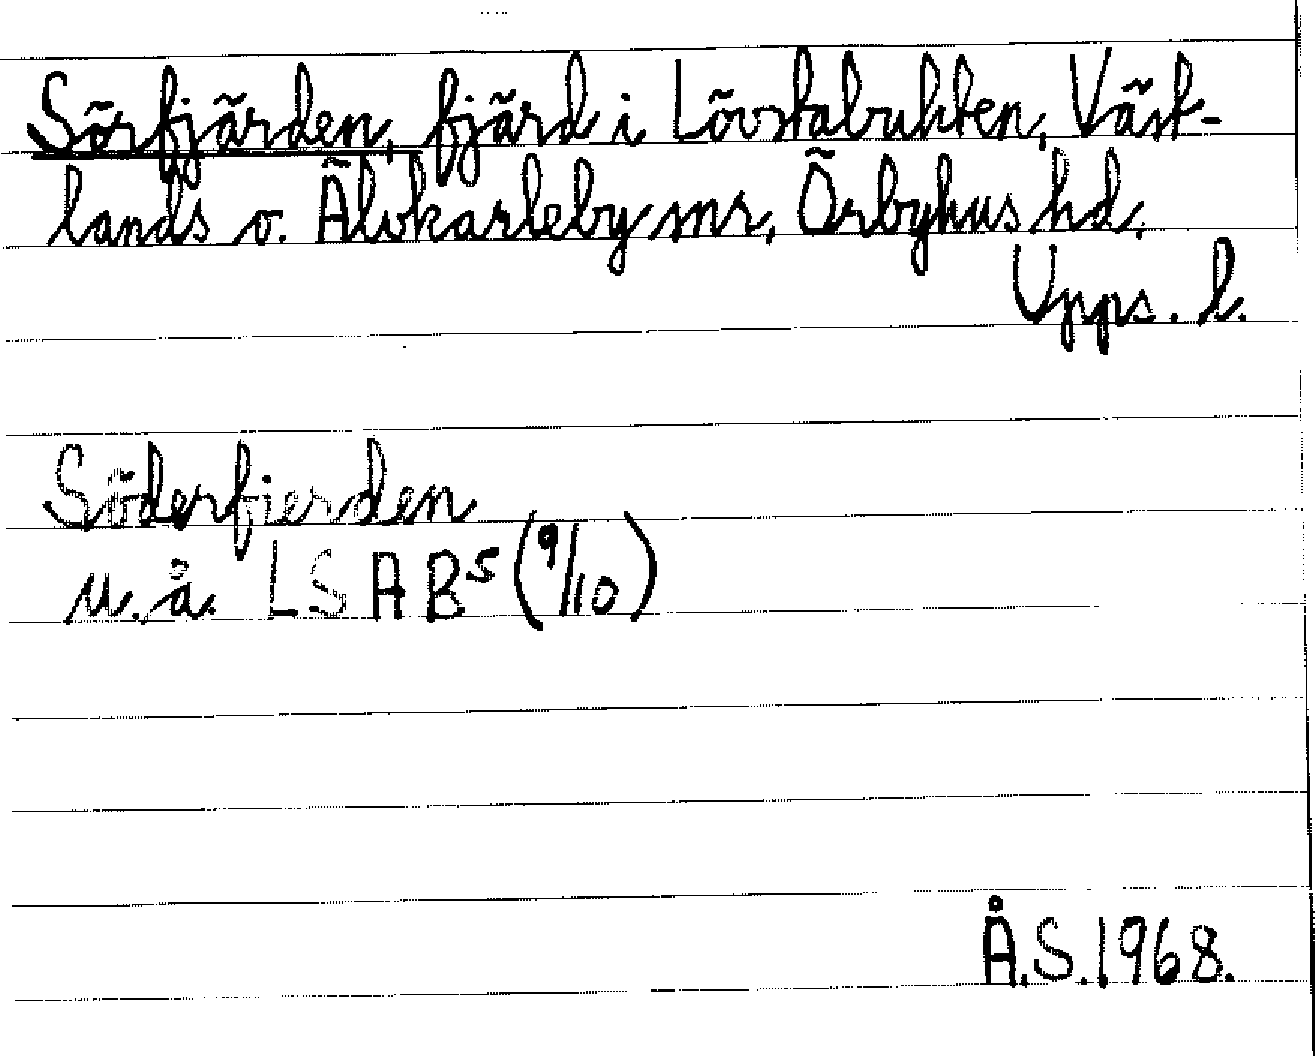 Sörfjärden, fjärd i Lövstabukten, Väst-
lands o. Älvkarleby snr, Örbyhus hd,
Upps. l.
Söderfierden
u.å. LSA B5 (9/10)
Å.S. 1968.